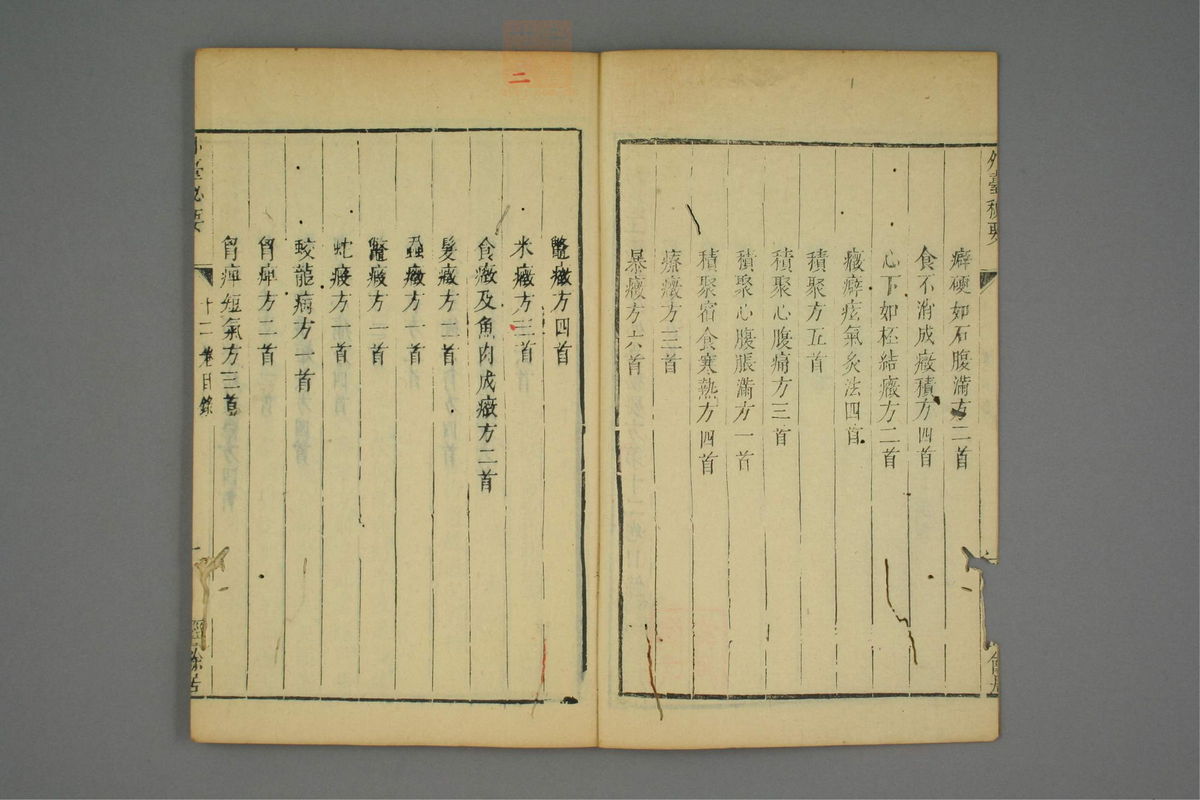 外臺秘要
癖硬如石腹滿方二首
食不消成癥積方四首
心下如杯結癥方二首
癥癖痃氣灸法四首
積聚方五首
積聚心腹痛方三首
積聚心腹脹滿方一首
積聚宿食寒熱方四首
療癥方三首
暴癥方六首
二
鼈癥方四首
米癥方三首
食癥及魚肉成癥方二首
髮癥方二首
蝨癥方一首
鼈瘕方一首
蛇瘕方一首
蛟龍病方一首
胷痺方二首
胷痺短氣方三首
臺必要
十二卷目錄
經餘居